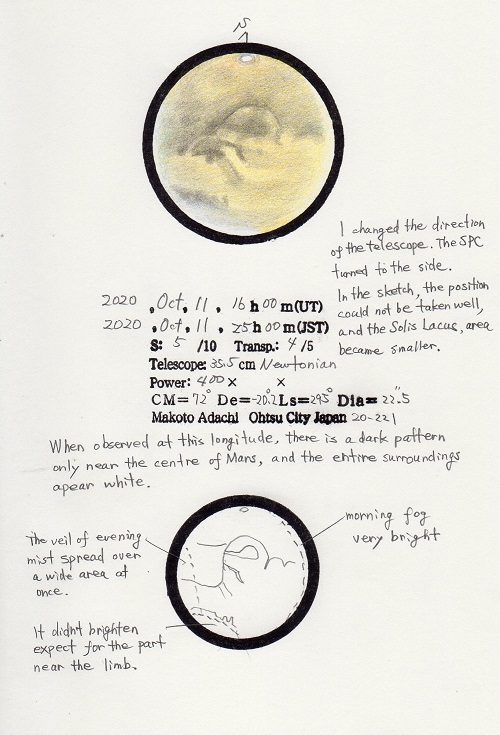 I changed the direction
of the telescope. The SPC
turned to the side.
In the sketch, the position
could not be taken well,
and the Solis Lacus, area
became smaller.
2020 , Oct, 11 , 16 h 00 m(UT)
2020 , Oct, 11 , 25 h 00 m(JST)
S: 5 /10 Transp.: 4 /5
Telescope: 35.5 cm Newtonian
Power: 400 × ×
CM= 72° De= -20.2° Ls= 295° Dia= 22.5"
Makoto Adachi Ohtsu City Japan 20-221
When observed at this longitude, there is a dark pattern
only near the centre of Mars, and the entire surroundings
apear white.
The veil of evening
mist spread over
a wide area at
once.
morning fog
very bright
It didn't brighten
expect for the part
near the limb.